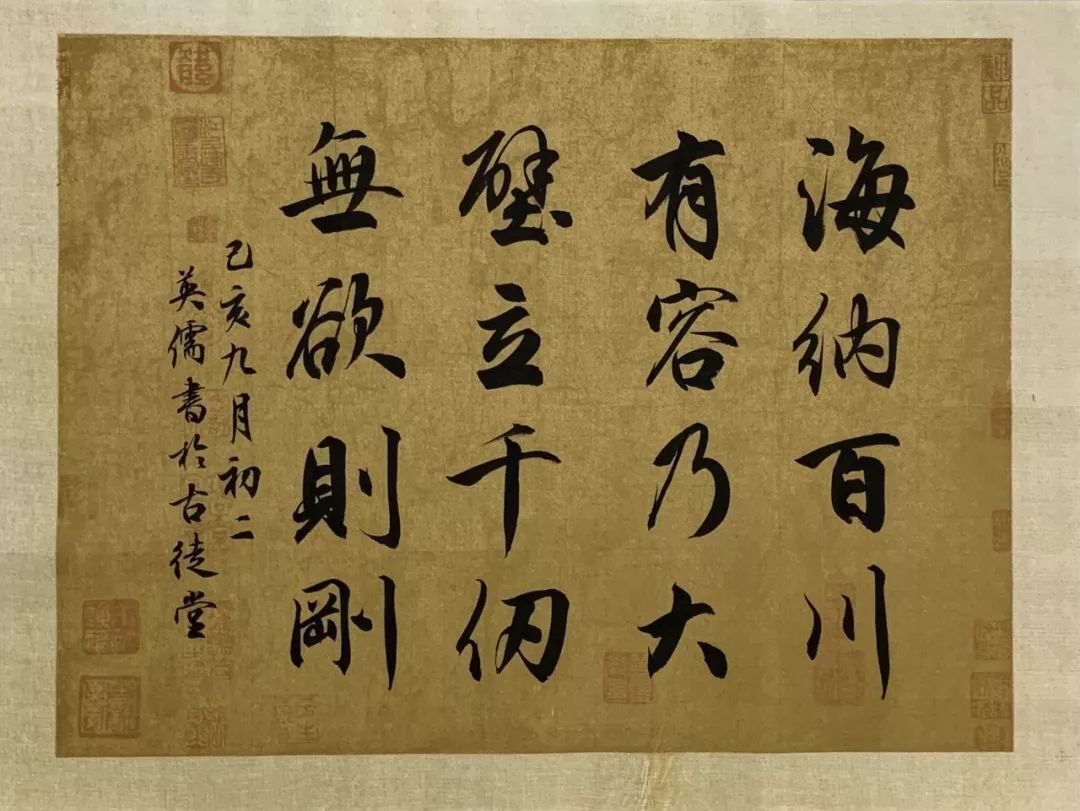 海納百川
有容乃大
壁立千仞
無欲則剛
己亥九月初二
英儒書於古徒堂